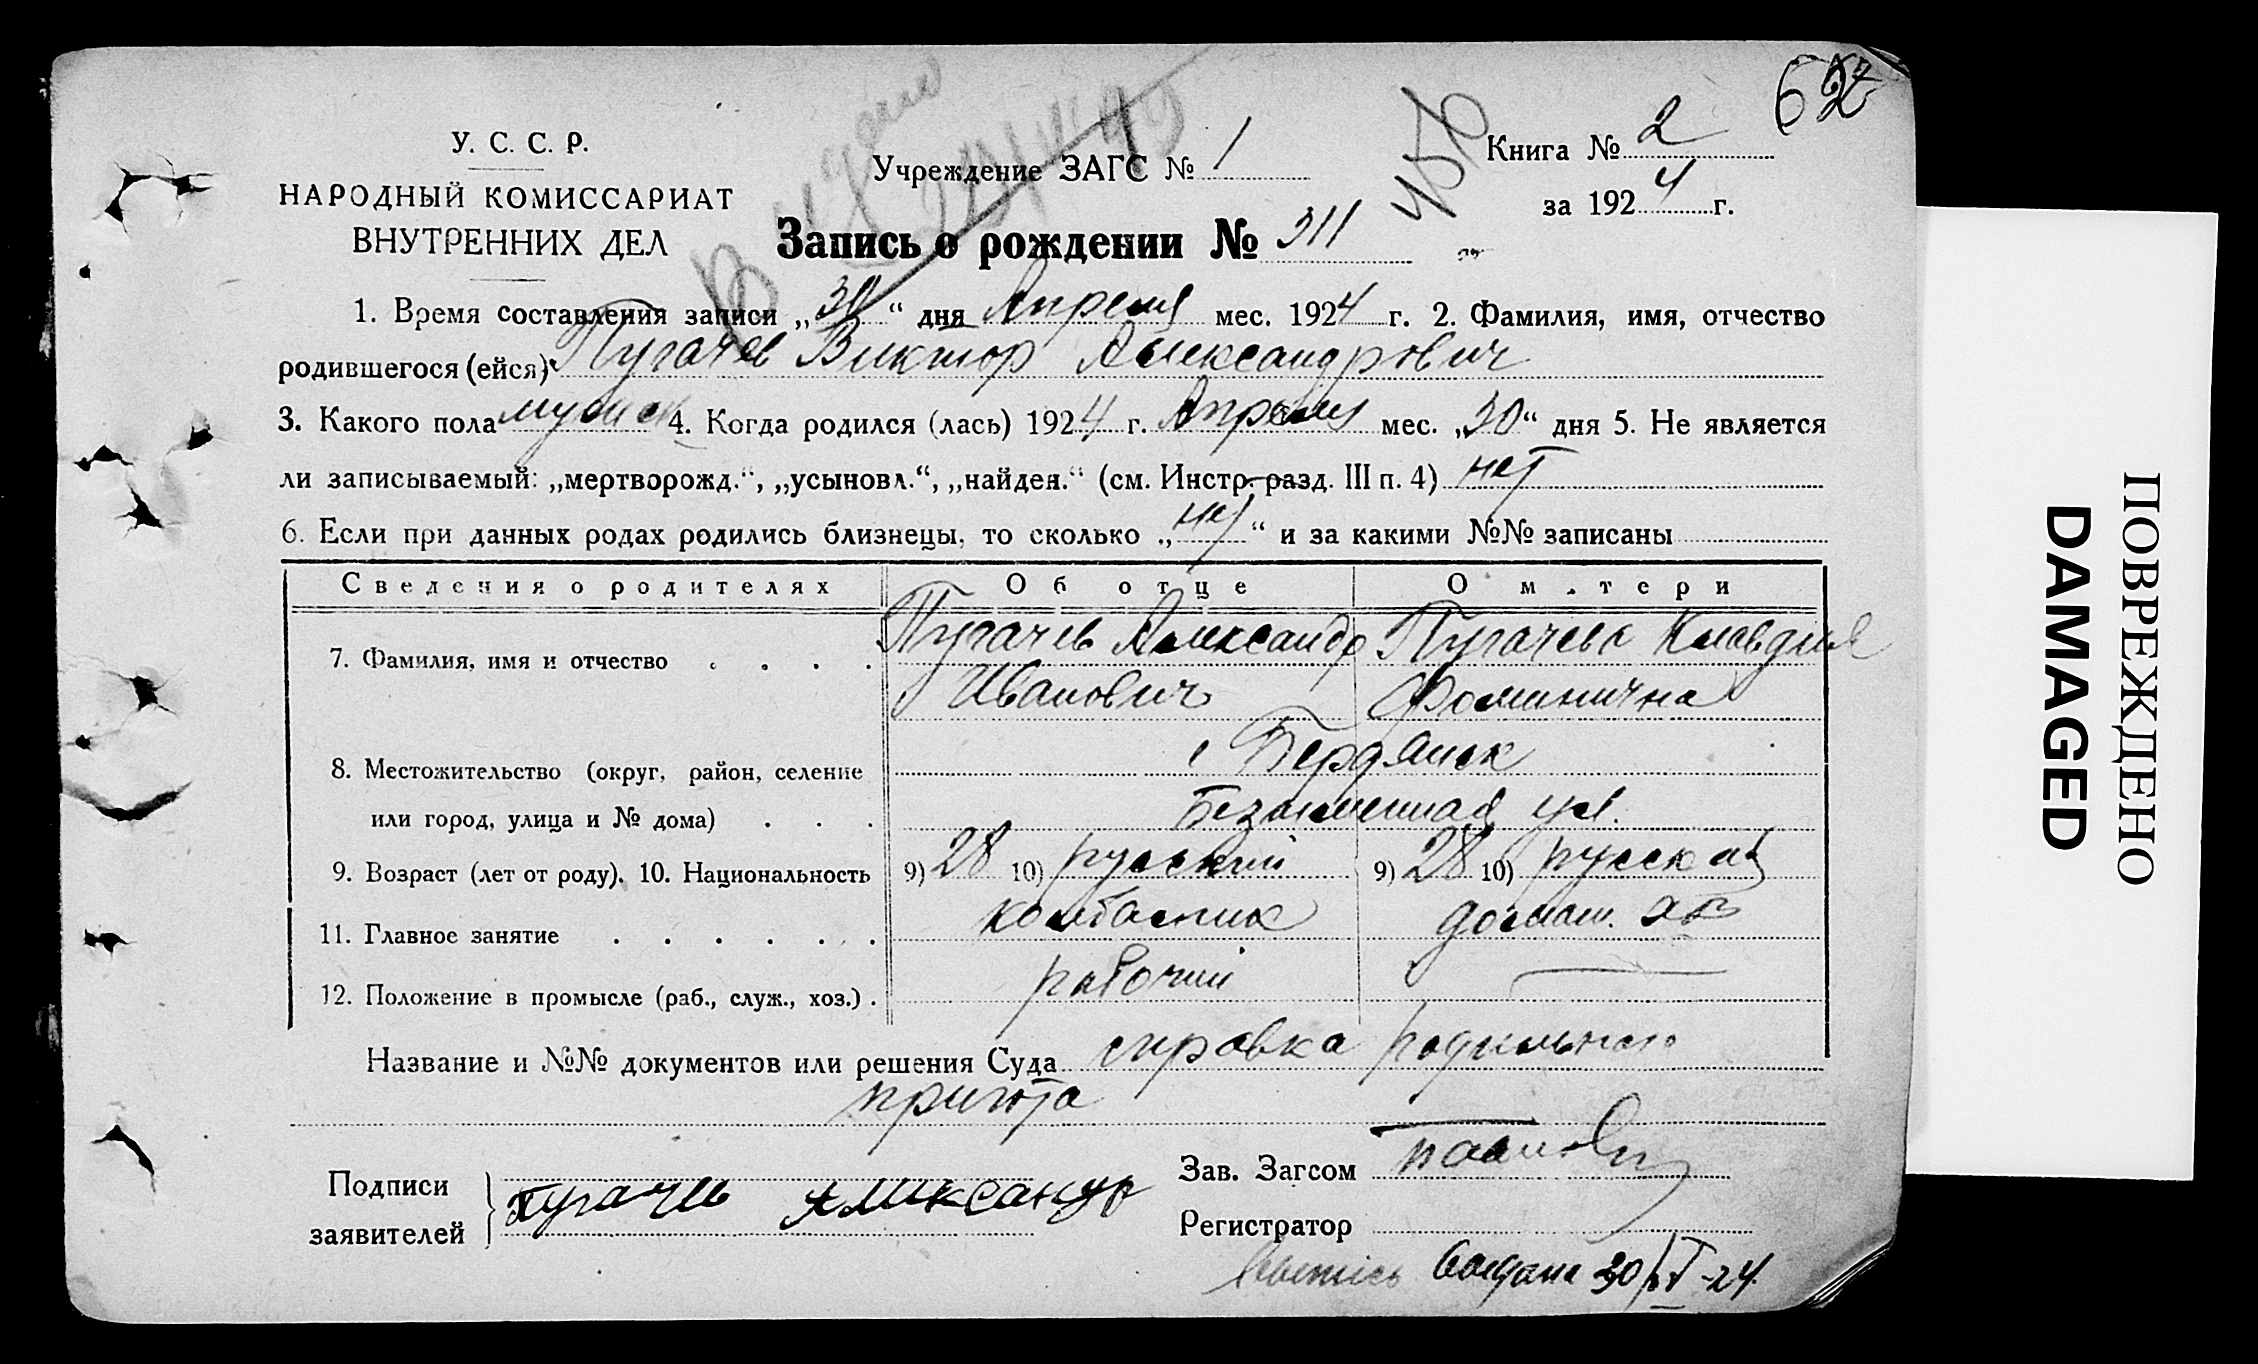 62
У. С. С. Р.
НАРОДНЫЙ КОМИССАРИАТ
ВНУТРЕННИХ ДЕЛ
Учреждение ЗАГС № 1
Книга № 2
за 1924 г.
Запись о рождении № 311
1. Время составления записи „30“ дня Апреля мес. 1924 г. 2. Фамилия, имя, отчество
родившегося (ейся) Пугачев Виктор Александрович
3. Какого пола мужск 4. Когда родился (лась) 1924 г. Апреля мес. „30“ дня 5. Не является
ли записываемый: „мертворожд.“, „усыновл.“, „найден.“ (см. Инстр. разд. III п. 4) нет
6. Если при данных родах родились близнецы, то сколько „нет“ и за какими №№ записаны
Сведения о родителях Об отце О м.тери
7. Фамилия, имя и отчество . . . . Пугачев Александр Пугачева Клавдия
Иванович Фоминична
8. Местожительство (округ, район, селение г Бердянск
или город, улица и № дома) . . . Безыменная ул.
9. Возраст (лет от роду). 10. Национальность 9) 28 10) русский 9) 28 10) русская
11. Главное занятие . . . . . . колбасник домаш. хоз
12. Положение в промысле (раб., служ., хоз.) . рабочий —
Название и №№ документов или решения Суда справка родильного
приюта
Подписи
заявителей
Пугачев Александр
Зав. Загсом
Регистратор
выдана 30/IV-24
ПОВРЕЖДЕНО
DAMAGED